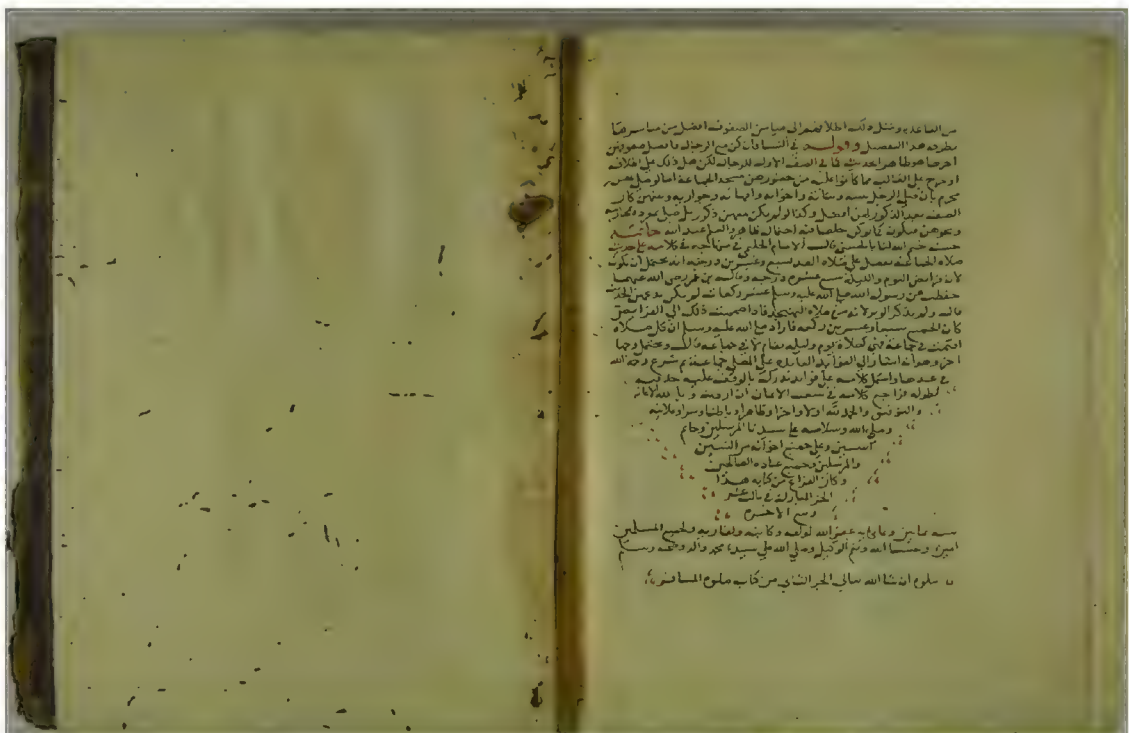 من القاعدة ومثل ذلك اطلاقهم ان ميامن الصفوف افضل من مياسرها
بطرقه هذا التفصيل وقوله في النساء وان كن مع الرجال فافضل صفوفهن
اخرها هو ظاهر الحديث كما في الصف الاول للرجال لكن هل ذلك على اطلاقه
او خرج على الغالب مما كانوا عليه من حضورهن مسجد الجماعة اما لو صلى بعض
محرم بان صلى الرجل ببنيه وبناته واخوانه وامهاته وجواريه ومنهن كان
الصف بعد الذكور لهن افضل وكذا لو لم يكن معهن ذكر بل صلى بمجرد محارمه
ونحوهن فيكون كما لو كن خلفه احتمال ظاهر والعلم عند الله خاتمة
حسنة ختم الله لنا بالحسنى قال الامام الحليمي في منهاجه في كلامه على حديث
صلاة الجماعة تفضل على صلاة الفذ بسبع وعشرين درجة انه يحتمل ان يكون
لان فرايض اليوم والليلة سبع عشرة درجة وقال بن عمر رضي الله عنهما
حفظت من رسول الله صلى الله عليه وسلم عشر ركعات
قال ولم يذكر الوتر لانه من صلاة التهجد فاذا ضممت ذلك الى الفرايض
كان الجميع سبعا وعشرين ركعة فاراد صلى الله عليه وسلم ان كل صلاة
اقيمت في جماعة فهي كصلاة يوم وليلة تقام لا في جماعة قال ويحتمل وجها
اخر وهو انه اشار الى الفوائد العائدة على المصلي جماعة ثم شرع رحمه الله
في عدها واشتمل كلامه على فوايد تدرك بالوقوف عليه حذفته
لطوله فراجع كلامه في شعب الايمان ان اردته وبالله الاعانة
والتوفيق والحمد لله اولا واخرا وظاهرا وباطنا وسرا وعلانية
وصلى الله وسلامه على سيدنا المرسلين وخاتم
النبيين وعلى جميع اخوانه من النبيين
والمرسلين وجميع عباده الصالحين
وكان الفراغ من كتابة هذا
الجزء المبارك في ثالث عشر
ربيع الاخر
سنة ثمانين وثمانمائة غفر الله لمؤلفه وكاتبه ولقاريه ولجميع المسلمين
امين وحسبنا الله ونعم الوكيل وصلى الله على سيدنا محمد واله وصحبه وسلم
يتلوه ان شا الله تعالى الجز الثاني من كتاب صلوة المسافر